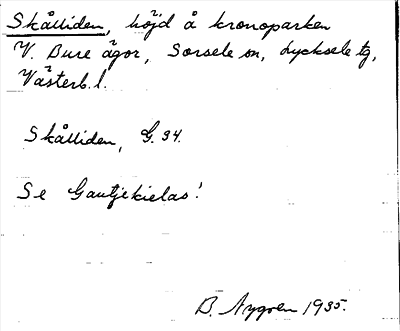 Skålliden, höjd å kronoparken
V. Bure ägor, Sorsele sn, Lycksele tg,
Västerb. l.
Skålliden, G. 94.
Se Gautjekielas!
B. Nygren 1935.